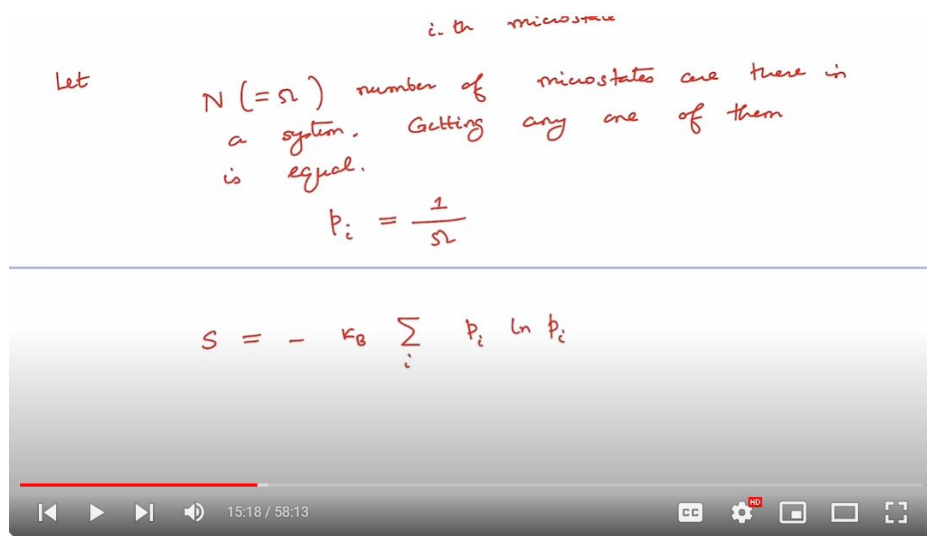 i. th microstate
Let
N (= Ω) number of microstates are there in
a system. Getting any one of them
is equal.
p_i = 1/Ω
S = - k_B Σ_i p_i ln p_i
15:18 / 58:13 CC HD